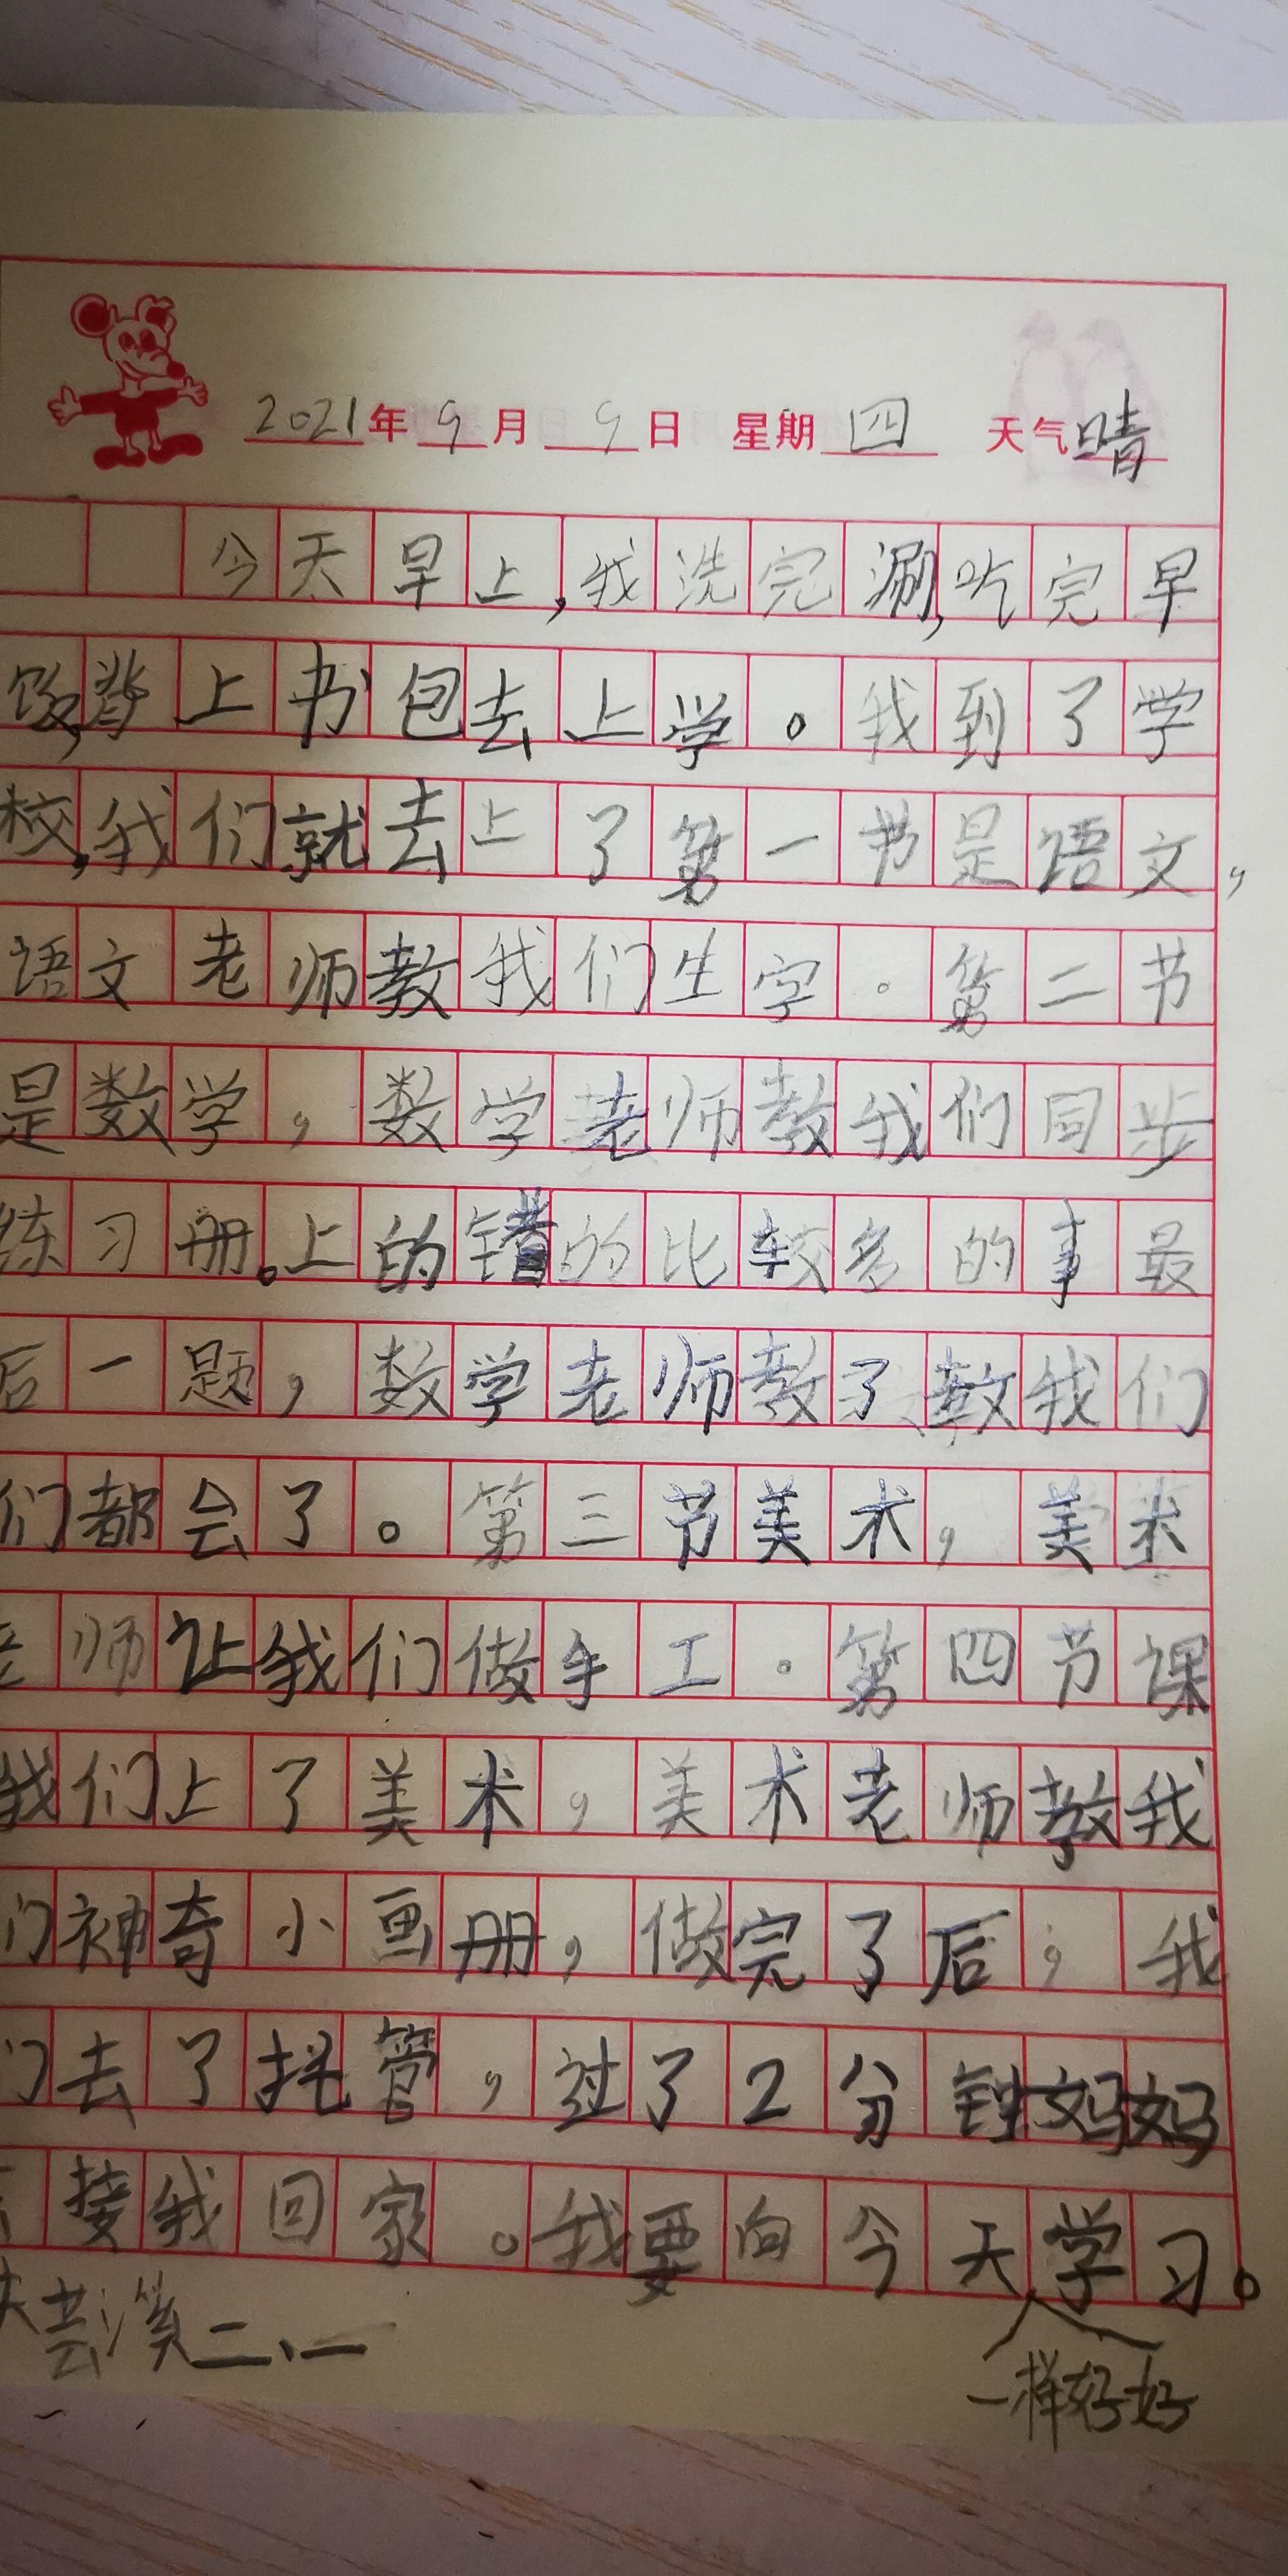 2021年9月9日 星期四 天气晴
今天早上,我洗完涮,吃完早
饭,背上书包去上学。我到了学
校,我们就去上了第一节是语文,
语文老师教我们生字。第二节
是数学,数学老师教我们同步
练习册。上的错的比较多的事最
后一题,数学老师教了教我们
们都会了。第三节美术,美术
老师让我们做手工。第四节课
我们上了美术,美术老师教我
们神奇小画册,做完了后,我
们去了托管,过了2分钟妈妈
接我回家。我要向今天学习。
一样好好
二、一